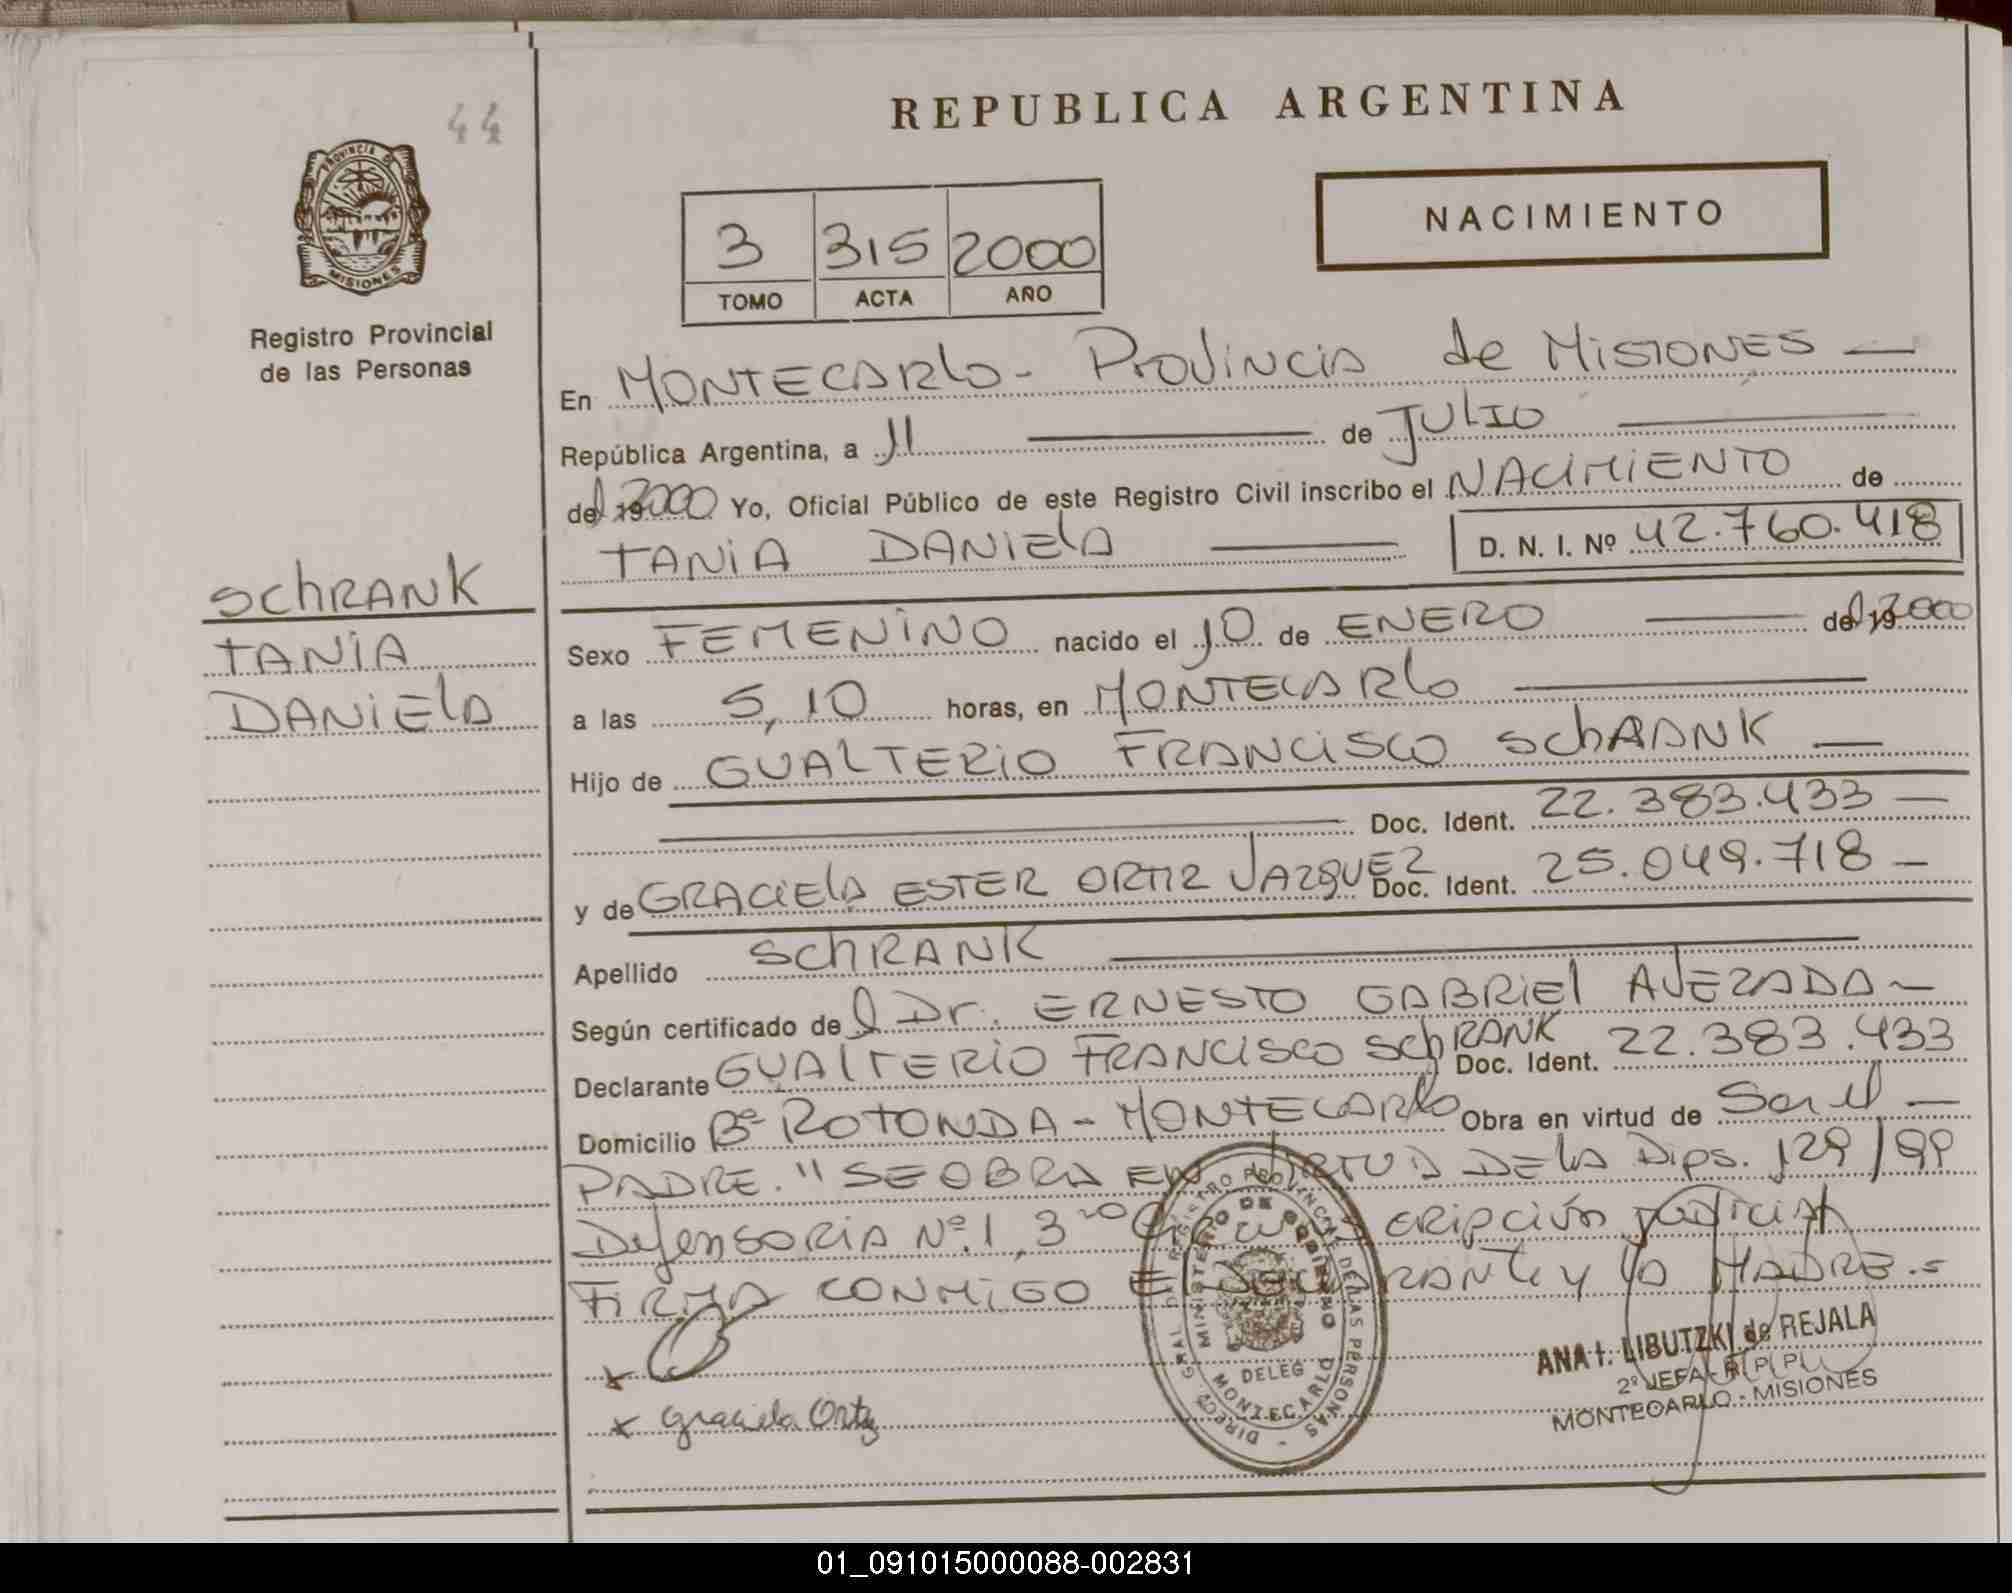 44
REPUBLICA ARGENTINA
PROVINCIA DE
MISIONES
Registro Provincial
de las Personas
NACIMIENTO
3 315 2000
TOMO ACTA AÑO
En MONTECARlo - PROVINCIA de MISIONES —
República Argentina, a 11 — de JULIO —
del 2000 Yo, Oficial Público de este Registro Civil inscribo el NACIMIENTO de
TANIA DANIELA — D. N. I. Nº 42.760.418
SCHRANK
TANIA
DANIELA
Sexo FEMENINO nacido el 10 de ENERO — del 2000
a las 5,10 horas, en MONTECARLO —
Hijo de GUALTERIO FRANCISCO SCHRANK —
Doc. Ident. 22.383.433 —
y de GRACIELA ESTER ORTIZ VAZQUEZ Doc. Ident. 25.049.718 —
Apellido SCHRANK —
Según certificado del Dr. ERNESTO GABRIEL AVEZADA —
Declarante GUALTERIO FRANCISCO SCHRANK Doc. Ident. 22.383.433
Domicilio Bº ROTONDA - MONTECARLO Obra en virtud de Ser el —
PADRE. "SE OBRA EN VIRTUD DE LA Dips. 129/99
Defensoria Nº 1, 3ra Circunscripción Judicial
FIRMA CONMIGO El DECLARANTE y la MADRE.-
x
x Graciela Ortiz
DIRECC. GRAL. DEL REGISTRO PROVINCIAL DE LAS PERSONAS
MINISTERIO DE GOBIERNO
DELEG
MONTECARLO
ANA I. LIBUTZKI de REJALA
2º JEFA - R P P
MONTECARLO - MISIONES
01_091015000088-002831